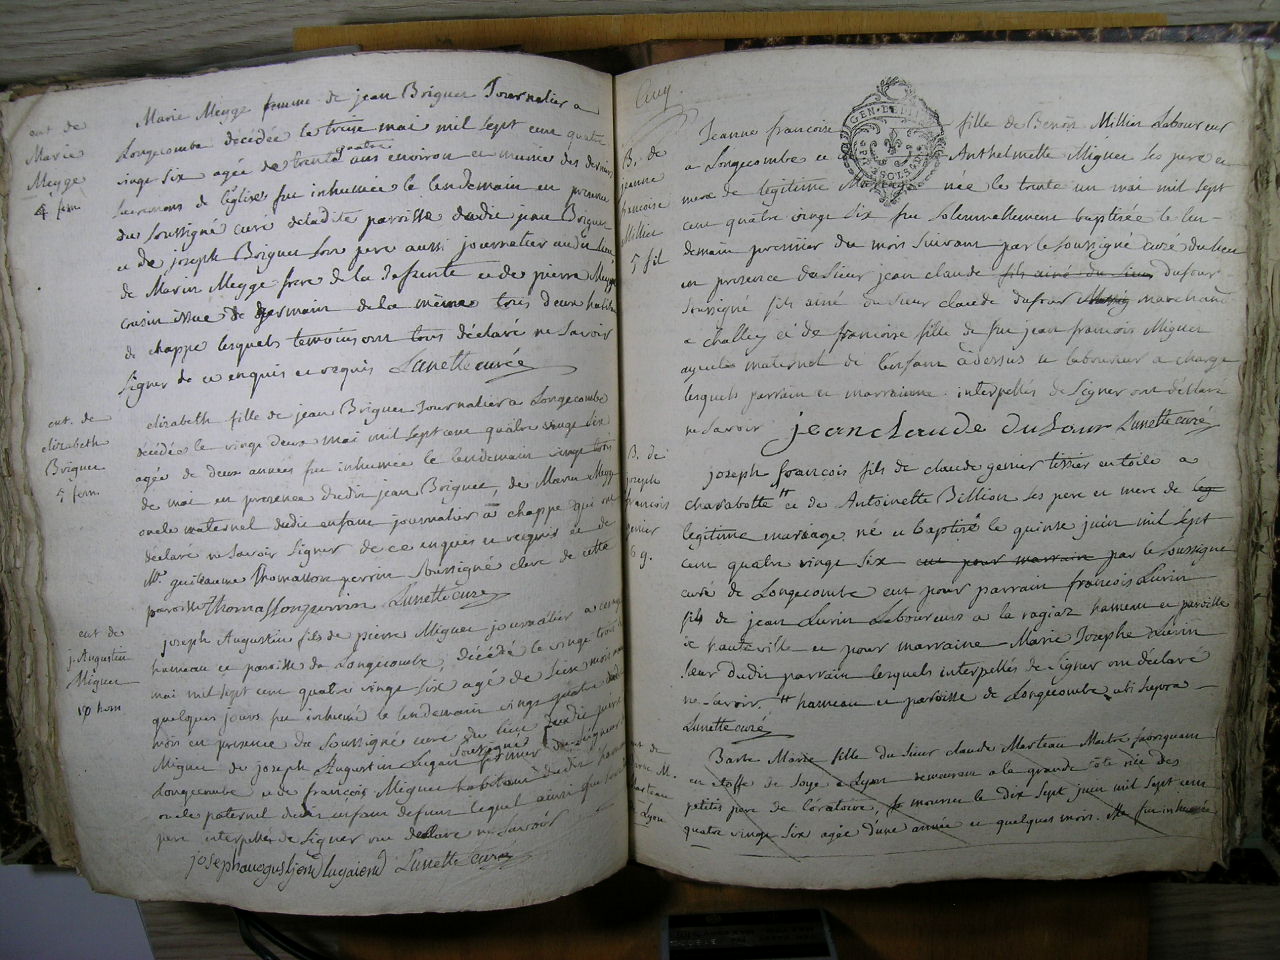 ent. de
Marie
Meyge
4 fem
Marie Meyge femme de jean Briguet Journalier a
Longecombe décédée le treize mai mil sept cent quatre
vingt six agée de trente quatre ans environ et munie des derniers
Sacremens de l'église fut inhumée le lendemain en presence
du soussigné curé de la ditte paroisse dudit jean Briguet
et de joseph Briguet son pere aussi journalier audit lieu
de Marin Meygge frere de la defunte et de pierre Meygge
cousin issue de germain de la même tous deux habit.
de chappe lesquels temoins ont tous déclaré ne Savoir
signer de ce enquis et requis Lunette curé
ent. de
elizabeth
Briguet
5 fem
elizabeth fille de jean Briguet Journalier a Longecombe
décédée le vingt deux mai mil sept cent quatre vingt six
agée de deux années fut inhumée le lendemain vingt trois
de mai en presence dudit jean Briguet, de Marin Meygge
oncle maternel dudit enfant journalier à chappe qui ont
déclaré ne Savoir Signer de ce enquis et requis et de
Mr. guillaume Thomasson perrin soussigné clerc de cette
paroisse Thomassonperrin Lunette curé
ent de
j. Augustin
Miguet
10 hom
joseph Augustin fils de pierre Miguet journalier a
hameau et paroisse de Longecombe, décédé le vingt trois
mai mil sept cent quatre vingt six agé de Seize mois
quelques jours fut inhumé le lendemain vingt quatre dudit
mois en presence du Soussigné curé du lieu dudit pierre
Miguet de joseph Augustin Lugan soussigné fermier du seigneur
Longecombe et de françois Miguet habitant dudit hameau
oncle paternel dudit enfant defunt lequel ainsi que
pere interpellés de Signer ont declaré ne Savoir
Lunette curé
B. de
jeanne
françoise
Millier
5 fil
Jeanne francoise fille de Benoît Millier Laboureur
a Longecombe et Anthelmette Miguet Ses pere et
mere de legitime née le trente un mai mil sept
cent quatre vingt six fut Solemnellement baptisée le len-
demain premier du mois Suivant par le soussigné curé du lieu
en presence du Sieur jean claude fils ainé du sieur dufour
soussigné fils ainé du Sieur claude dufour marchand
a challey et de francoise fille de fut jean francois Miguet
ayeule maternel de l'enfant a dessus et laboureur a charge
lesquels parrain et marraine interpellés de Signer ont declaré
ne Savoir jean claude dufour Lunette curé
B. de
joseph
francois
genier
6 g.
joseph françois fils de claude genier tissier en toile a
charabotte # et de Antoinette Billion Ses pere et mere de leg
legitime mariage né et baptisé le quinze juin mil sept
cent quatre vingt six eut pour marraine par le soussigné
curé de Longecombe eut pour parrain françois Livrin
fils de jean Livrin Laboureurs a la ragiaz hameau et paroisse
de hauteville et pour marraine Marie Josephe Livrin
soeur dudit parrain lesquels interpellés de Signer ont déclaré
ne Savoir. # hameau et paroisse de Longecombe ubi Supra
Lunette curé
ent de
Marteau
Lyon
Barbe Marie fille du Sieur claude Marteau Maître fabriquant
en etoffe de Soye a Lyon demeurant a la grande côte née des
petits pere de l'oratoire, mourrut le dix sept juin mil sept cent
quatre vingt six agée d'une année et quelques mois. fut inhumée